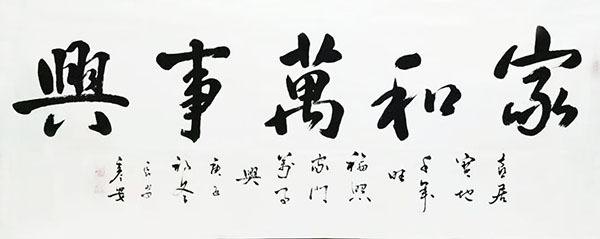 家和萬事興
喜居
寶地
千年
旺
福照
家門
萬事
興
庚子
初冬